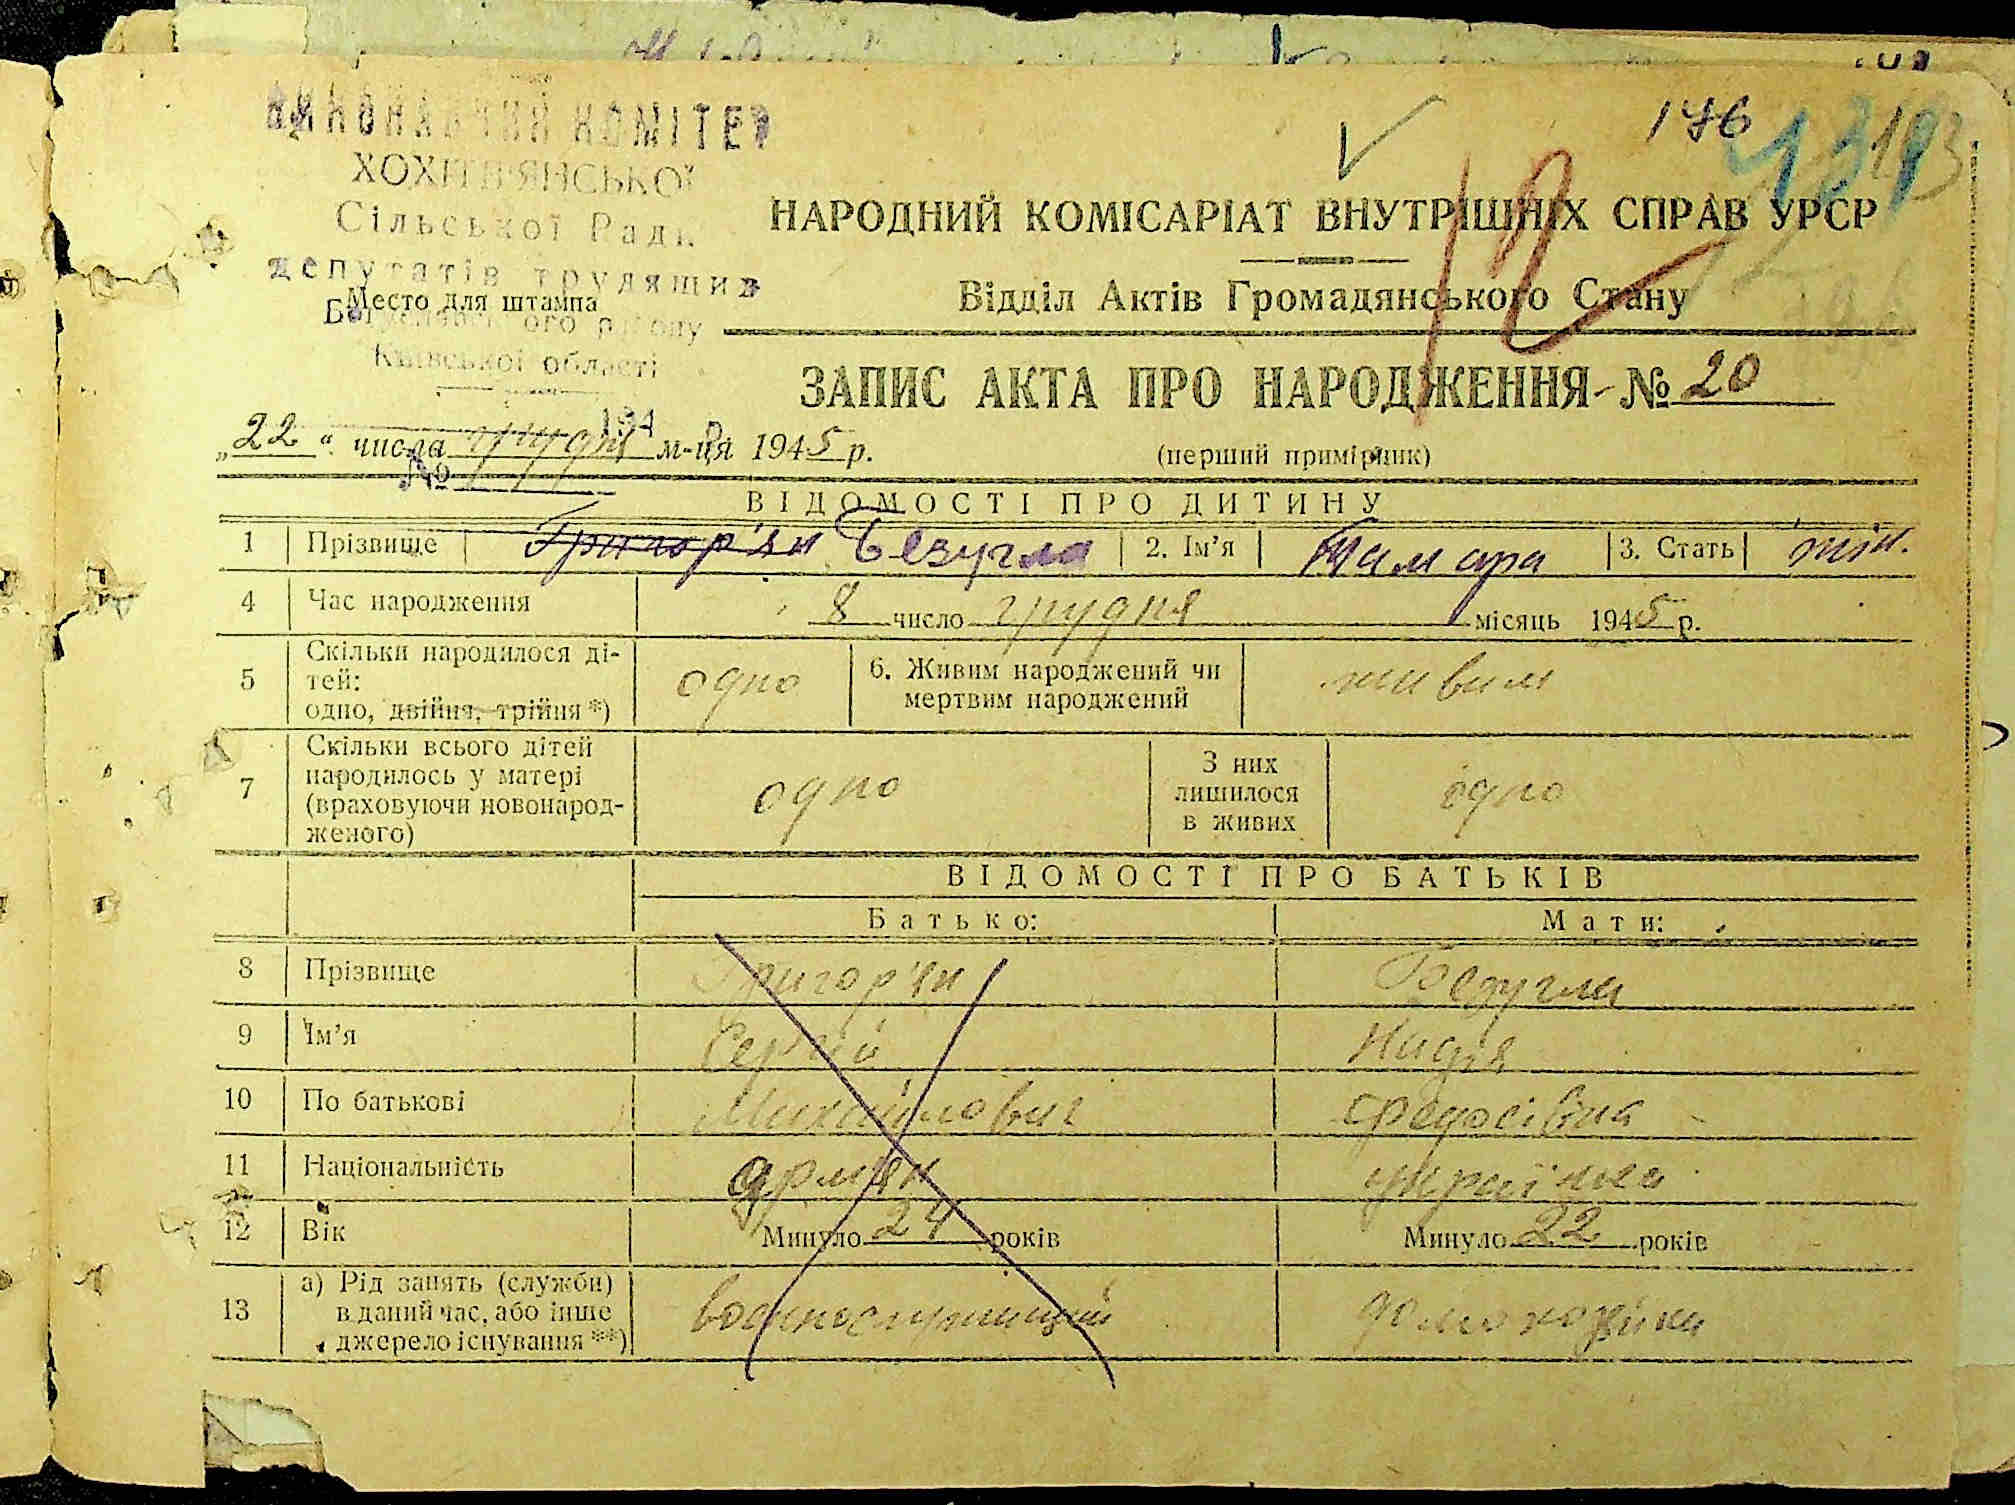 ВИКОНАВЧИЙ КОМІТЕТ
ХОХІТВ'ЯНСЬКОЇ
Сільської Ради
депутатів трудящих
Место для штампа
Богуславського району
Київської області
194 р.
№
176
НАРОДНИЙ КОМІСАРІАТ ВНУТРІШНІХ СПРАВ УРСР
Відділ Актів Громадянського Стану
ЗАПИС АКТА ПРО НАРОДЖЕННЯ № 20
„22“ числа грудня м-ця 1945 р.
(перший примірник)
ВІДОМОСТІ ПРО ДИТИНУ
1 Прізвище Григор'ян Безугла 2. Ім'я Тамара 3. Стать жін.
4 Час народження 8 число грудня місяць 1945 р.
5 Скільки народилося ді-
тей:
одно, двійня, трійня *) одно 6. Живим народжений чи
мертвим народжений живим
7 Скільки всього дітей
народилось у матері
(враховуючи новонарод-
женого) одно З них
лишилося
в живих одно
ВІДОМОСТІ ПРО БАТЬКІВ
Батько: Мати:
8 Прізвище Григор'ян Безугла
9 Ім'я Сергій Надія
10 По батькові Михайлович Федосівна
11 Національність армян українка
12 Вік Минуло 24 років Минуло 22 років
13 а) Рід занять (служби)
в даний час, або інше
джерело існування **) военнослужищий домохазяйка